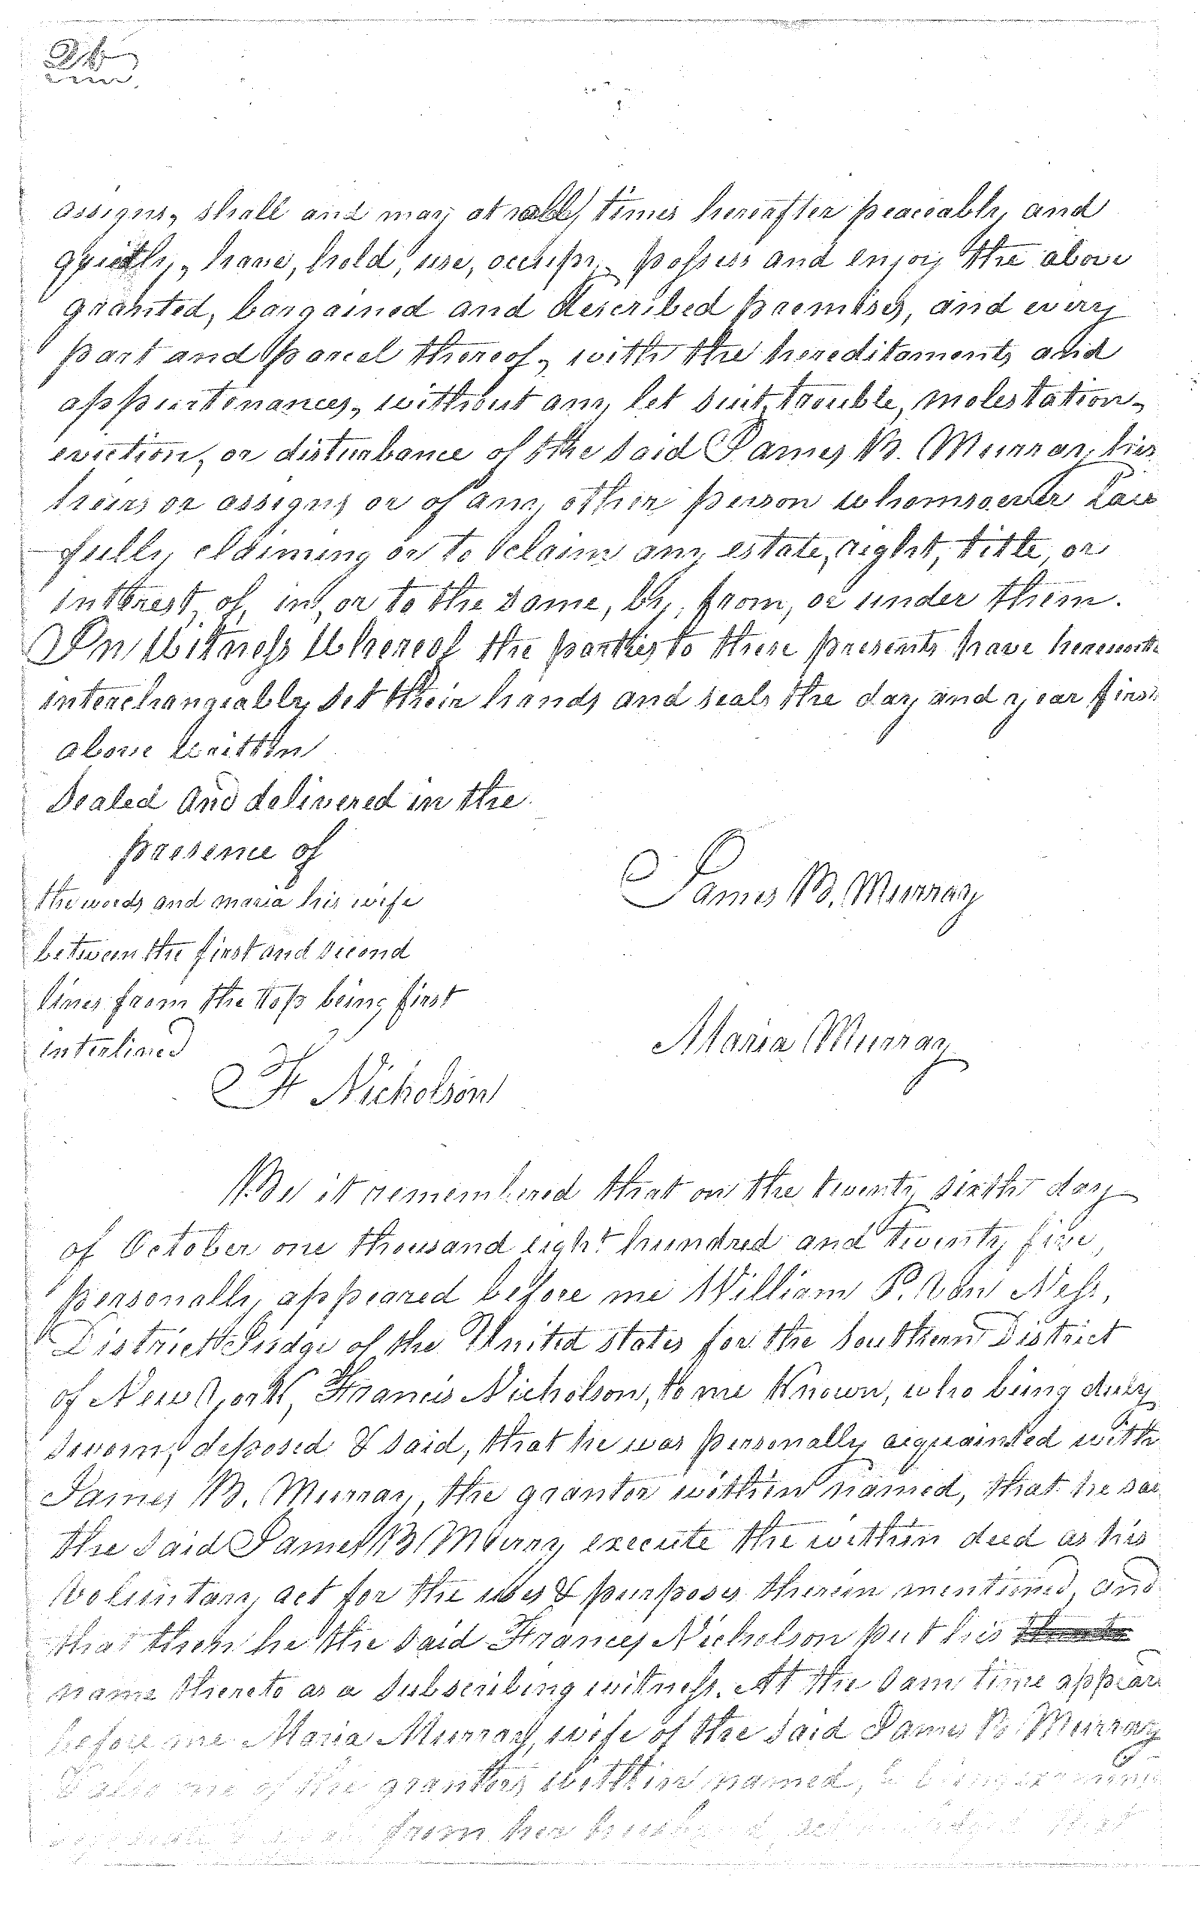 26
assigns, shall and may at all times hereafter peaceably and
quietly, have, hold, use, occupy, possess and enjoy the above
granted, bargained and described premises, and every
part and parcel thereof, with the hereditaments and
appurtenances, without any let suit, trouble, molestation,
eviction, or disturbance of the said James B. Murray, his
heirs or assigns or of any other person whomsoever Law
fully claiming or to claim any estate, right, title, or
interest, of, in, or to the same, by, from, or under them.
In Witness Whereof the parties to these presents have hereunto
interchangeably set their hands and seals the day and year first
above written
Sealed and delivered in the
presence of
the words and maria his wife
between the first and second
lines from the top being first
interlined
F Nicholson
James B. Murray
Maria Murray
Be it remembered that on the twenty sixth day
of October one thousand eight hundred and twenty five,
personally appeared before me William P. Van Ness,
District Judge of the United states for the Southern District
of New York, Francis Nicholson, to me Known, who being duly
sworn, deposed & said, that he was personally acquainted with
James B. Murray, the grantor within named, that he saw
the said James B Murry execute the within deed as his
Voluntary act for the uses & purposes therein mentioned, and
that then he the said Frances Nicholson put his
name thereto as a subscribing witness. At the Same time appear
before me Maria Murray, wife of the said James B. Murray
& also one of the grantors within named, & being
from her husband, that